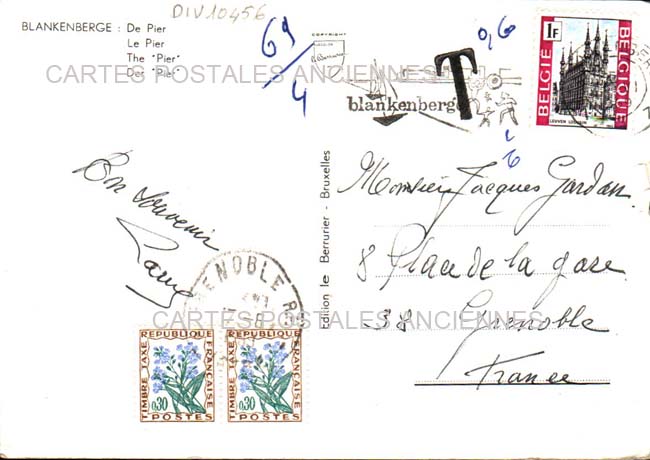 DIV10456
BLANKENBERGE : De Pier
Le Pier
The "Pier"
Der "Pier"
CARTES POSTALES ANCIENNES
COPYRIGHT
69
4
T
0,6
blankenberge
1F
BELGIE
BELGIQUE
LEUVEN LOUVAIN
Bon Souvenir
Edition le Berrurier - Bruxelles
Monsieur Jacques Gardan
8 Place de la gare
38 Grenoble
France
CARTES POSTALES ANCIENNES
GRENOBLE R
REPUBLIQUE FRANCAISE
TIMBRE TAXE
0,30
POSTES
REPUBLIQUE FRANCAISE
TIMBRE TAXE
0,30
POSTES